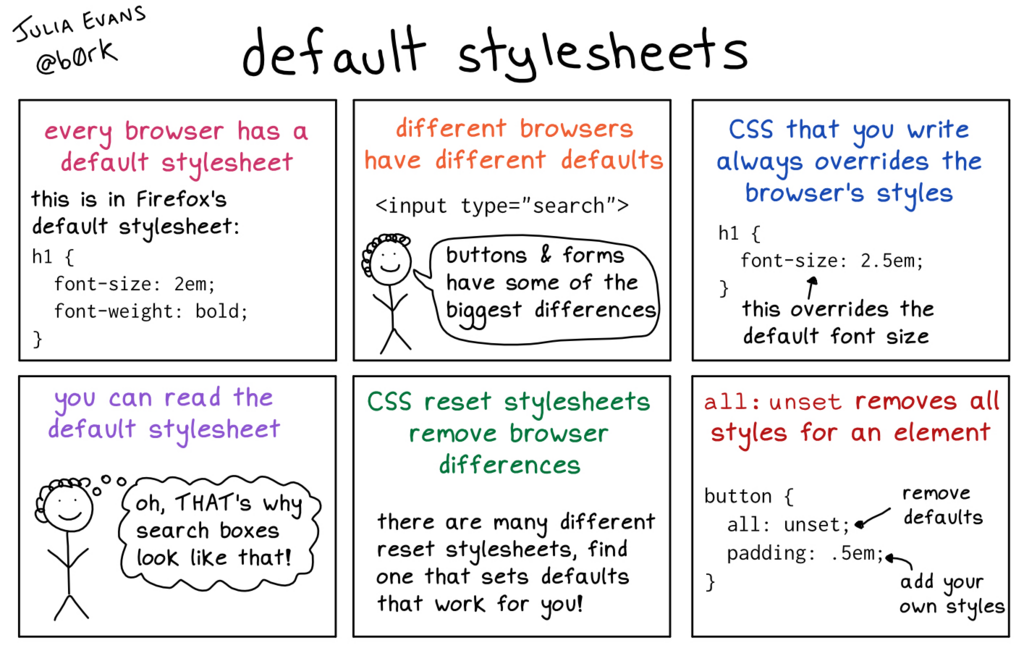 JULIA EVANS
@b0rk
default stylesheets
every browser has a
default stylesheet
this is in Firefox's
default stylesheet:
h1 {
  font-size: 2em;
  font-weight: bold;
}
different browsers
have different defaults
<input type="search">
buttons & forms
have some of the
biggest differences
CSS that you write
always overrides the
browser's styles
h1 {
  font-size: 2.5em;
}
this overrides the
default font size
you can read the
default stylesheet
oh, THAT's why
search boxes
look like that!
CSS reset stylesheets
remove browser
differences
there are many different
reset stylesheets, find
one that sets defaults
that work for you!
all: unset removes all
styles for an element
button {
  all: unset;
  padding: .5em;
}
remove
defaults
add your
own styles